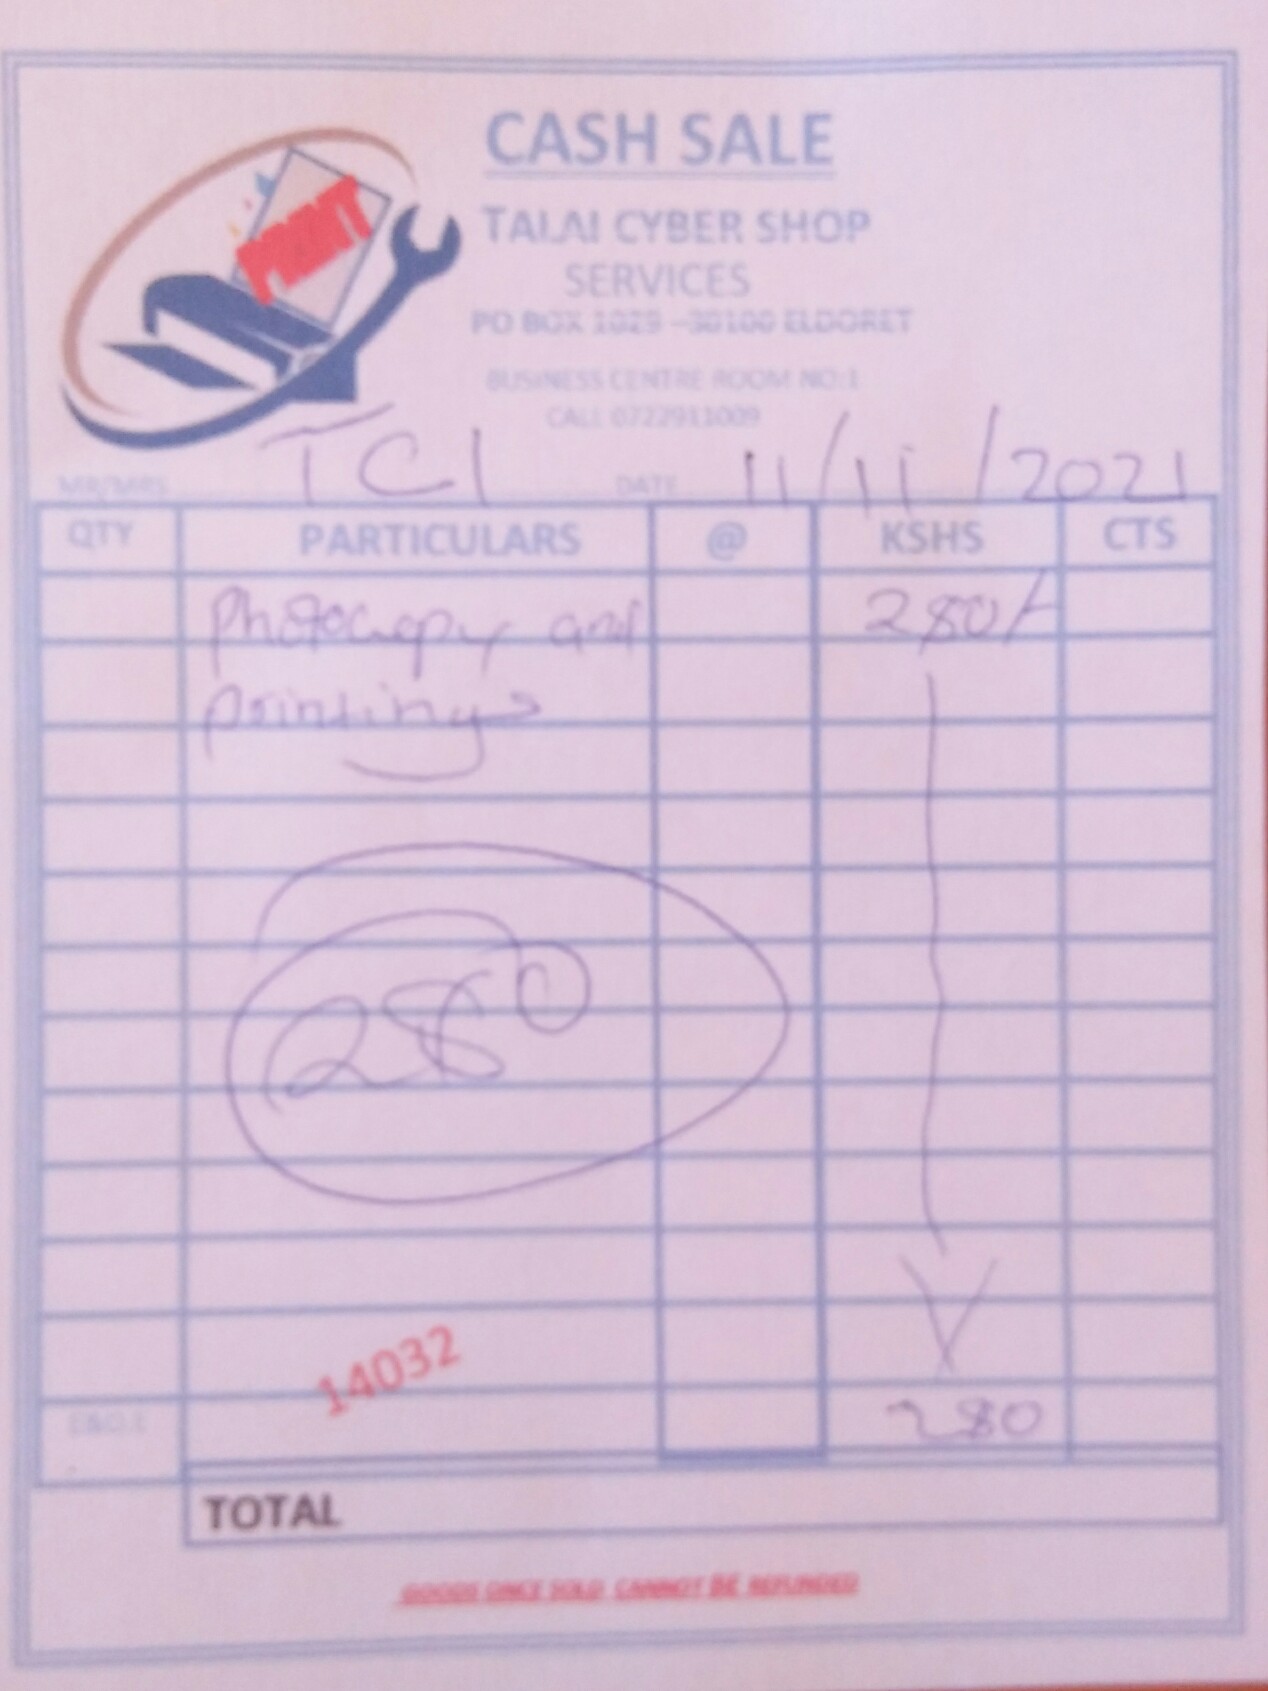 CASH SALE
PRINT
TALAI CYBER SHOP
SERVICES
PO BOX 1029 -30100 ELDORET
BUSINESS CENTRE ROOM NO:1
CALL 0722911009
MR/MRS TCI DATE 11/11/2021
QTY PARTICULARS @ KSHS CTS
Photocopy and 280/-
printings
280
14032
E&O.E 280
TOTAL
GOODS ONCE SOLD CANNOT BE REFUNDED